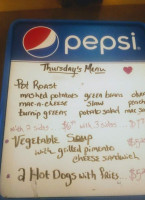 pepsi
Thursday's Menu
Pot Roast
mashed potatoes green beans
mac-n-cheese Slaw
turnip greens potato salad mac
with 2 sides $6 with 3 sides
Vegetable Soup
with grilled pimento
cheese sandwich
2 Hot Dogs with Fries $5